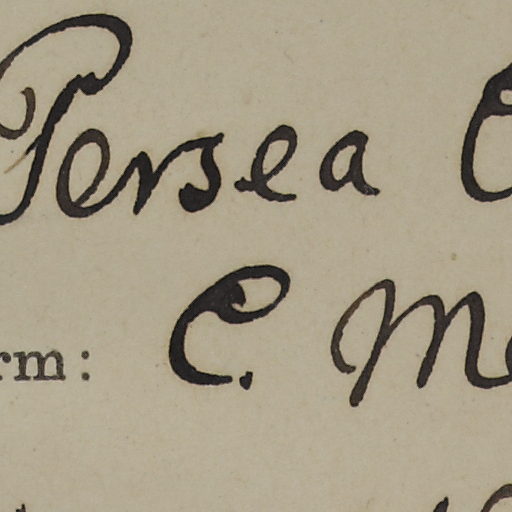 Persea
rm: C.